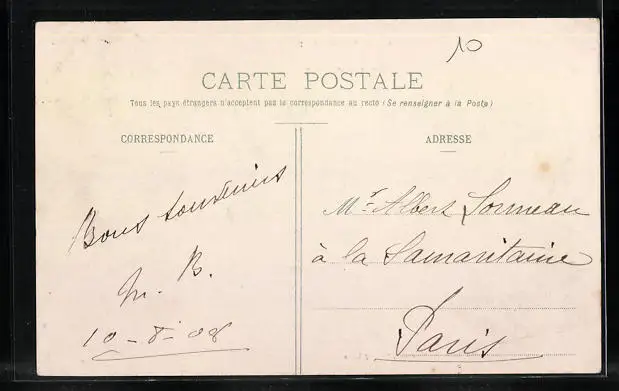 10
CARTE POSTALE
Tous les pays étrangers n'acceptent pas la correspondance au recto (Se renseigner à la Poste)
CORRESPONDANCE
ADRESSE
Bons souvenirs
M. B.
10-8-08
Mr Albert
à la Samaritaine
Paris